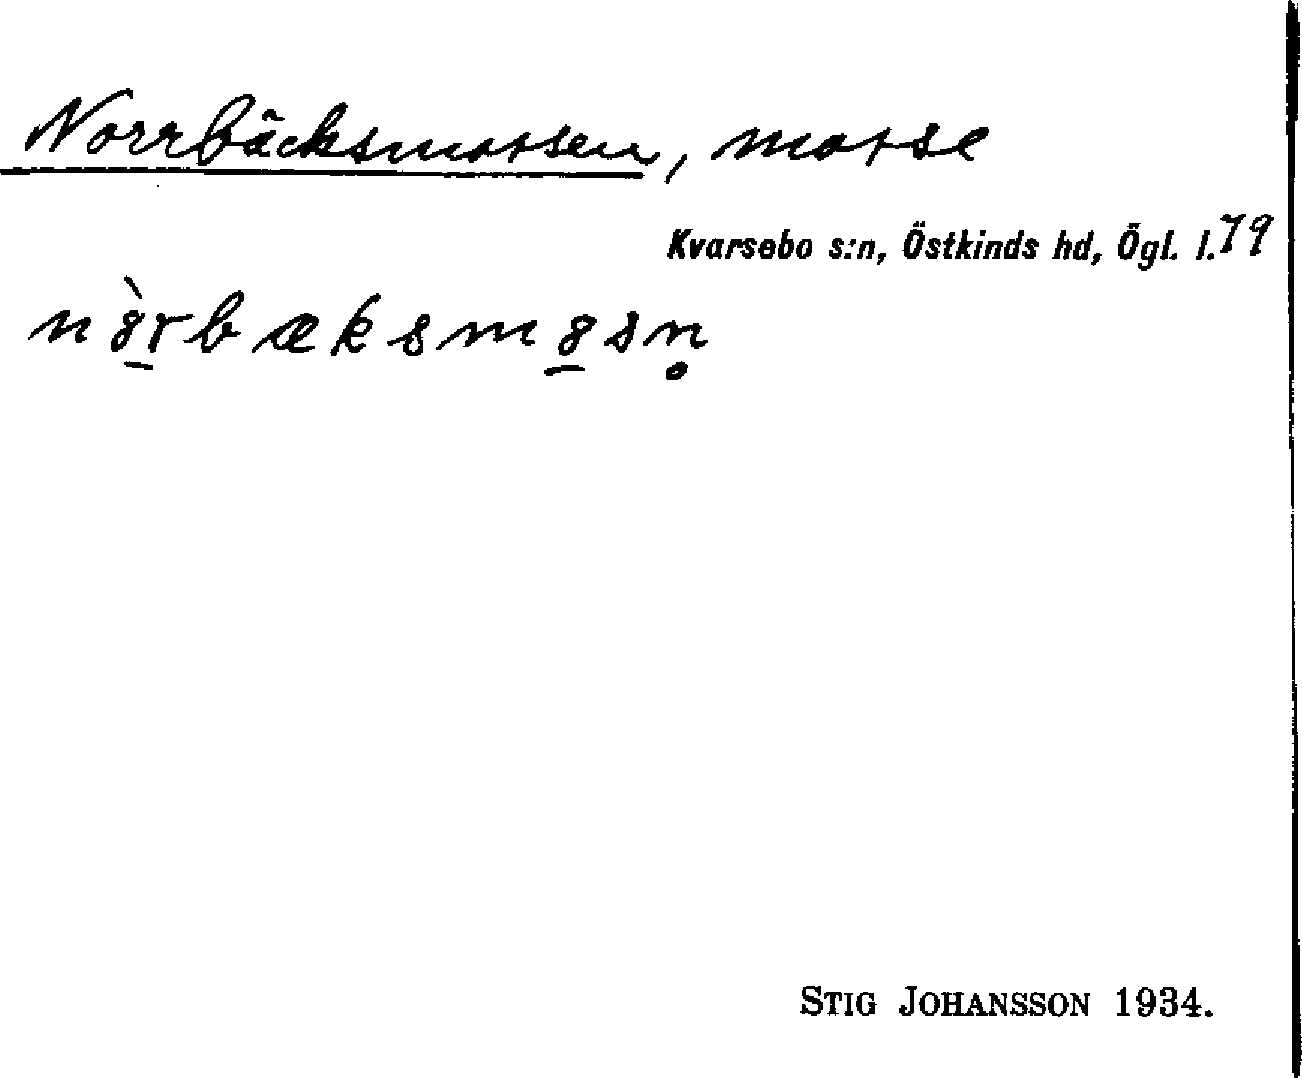 Norrbäcksmossen, mosse
Kvarsebo s:n, Östkinds hd, Ögl. l. 79
STIG JOHANSSON 1934.